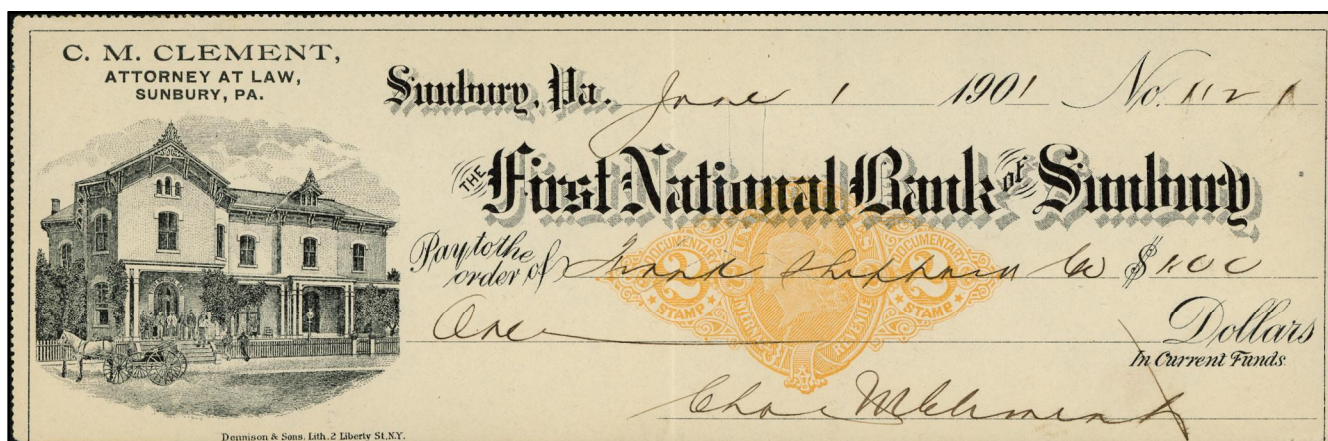 C. M. CLEMENT,
ATTORNEY AT LAW,
SUNBURY, PA.
Sunbury, Pa. June 1 1901 No. 1121
THE First National Bank of Sunbury
Pay to the
order of Frank Sheppard Co $1.00
One Dollars
In Current Funds.
DOCUMENTARY 2 STAMP
U.S. INTERNAL REVENUE
DOCUMENTARY 2 STAMP
Chas M Clement
Dennison & Sons, Lith. 2 Liberty St. N.Y.